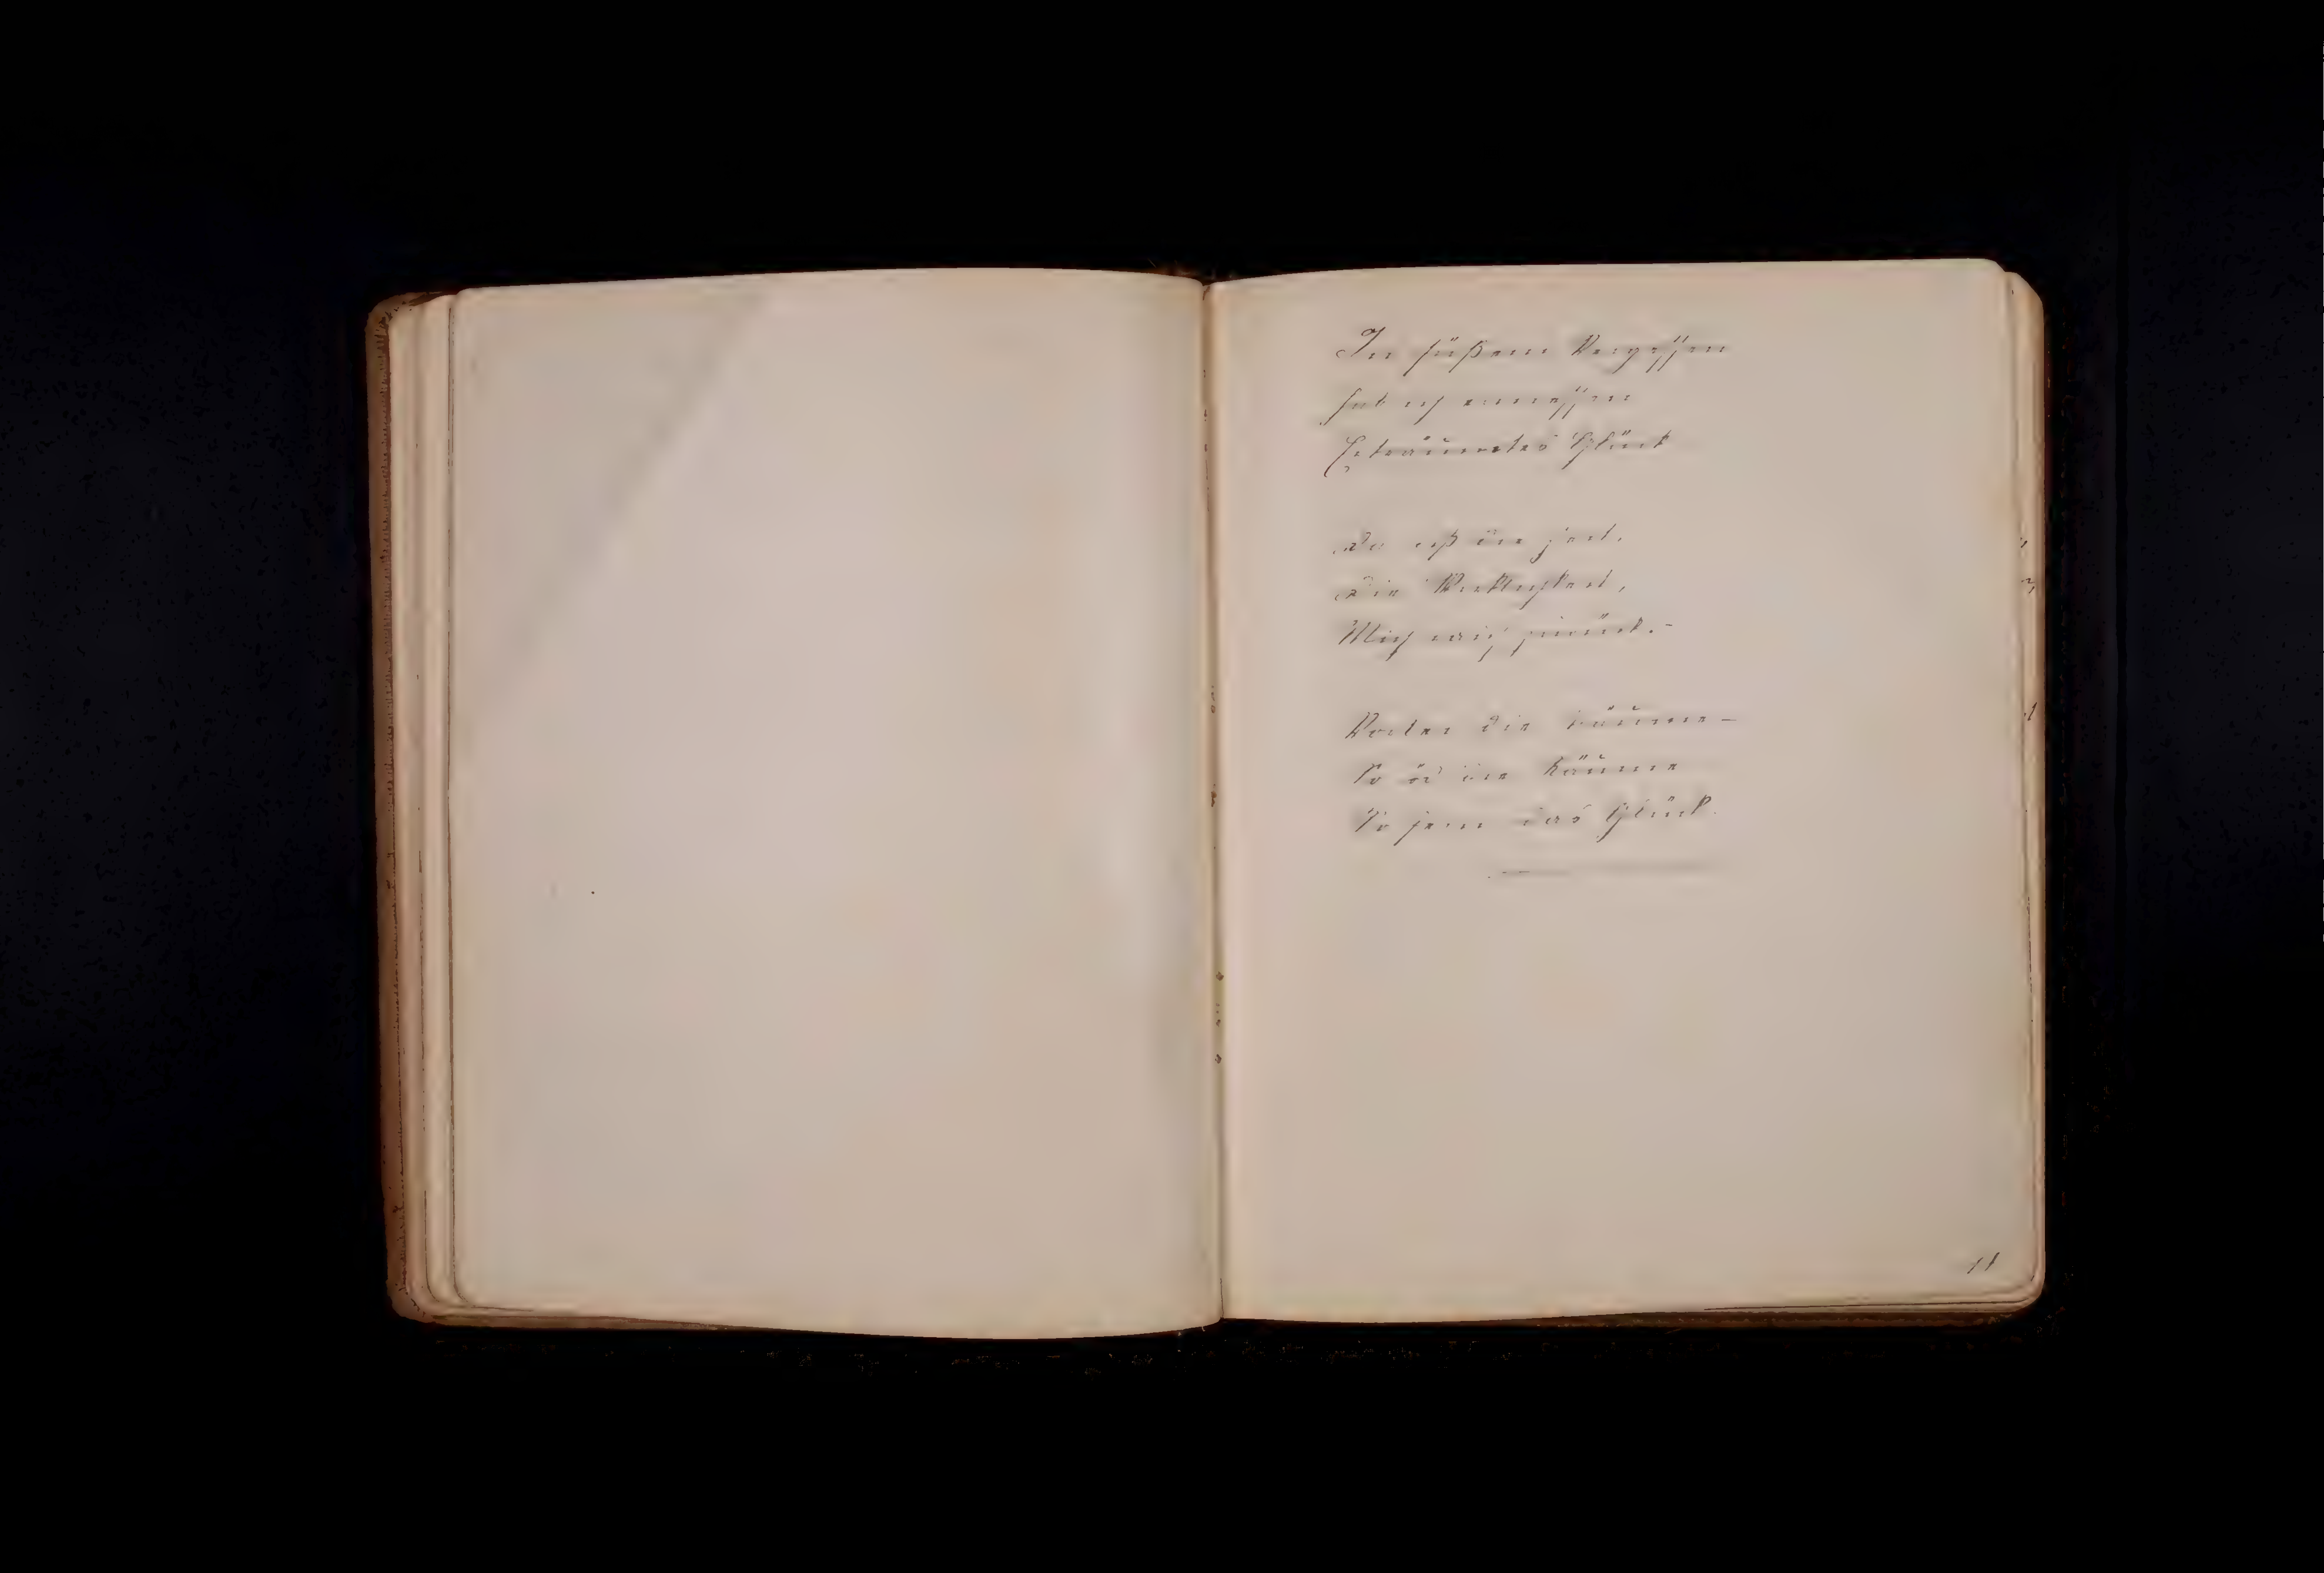 In süßem Vergessen
Hab ich ermessen
Erträumtes Glück
Da riß die Zeit,
Die Wirklichkeit,
Mich weit zurück.–
Vorbei die Träume –
So öd die Räume
So fern das Glück.
11